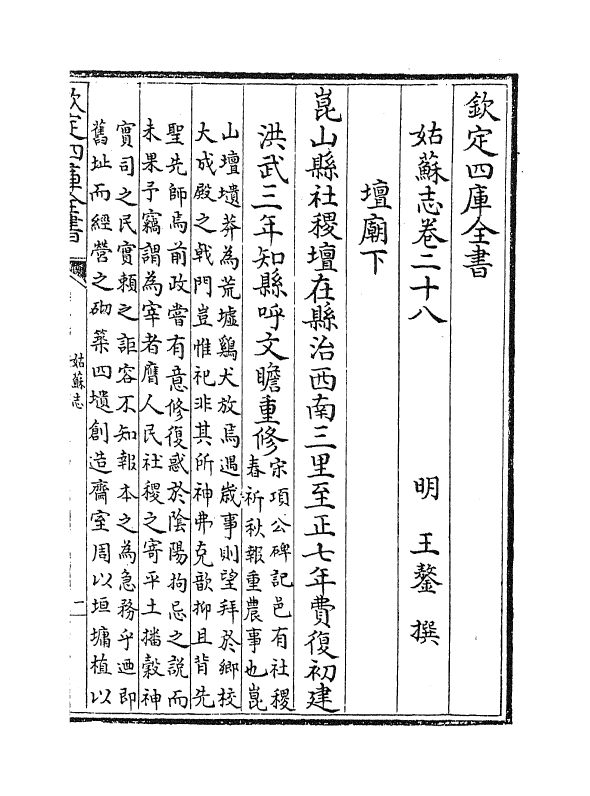 欽定四庫全書
姑蘇志卷二十八
明　王鏊　撰
壇廟下
崑山縣社稷壇在縣治西南三里至正七年費復初建
洪武三年知縣呼文瞻重修
宋項公碑記邑有社稷
春祈秋報重農事也崑
山壇壝莽為荒墟鷄犬放焉遇歲事則望拜於鄉校
大成殿之㦸門豈惟祀非其所神弗克歆抑且背先
聖先師焉前政嘗有意修復惑於陰陽拘忌之說而
未果予竊謂為宰者膺人民社稷之寄平土播穀神
實司之民實賴之詎容不知報本之為急務乎廼即
舊址而經營之砌築四壝創造齋室周以垣墉植以
欽定四庫全書
姑蘇志